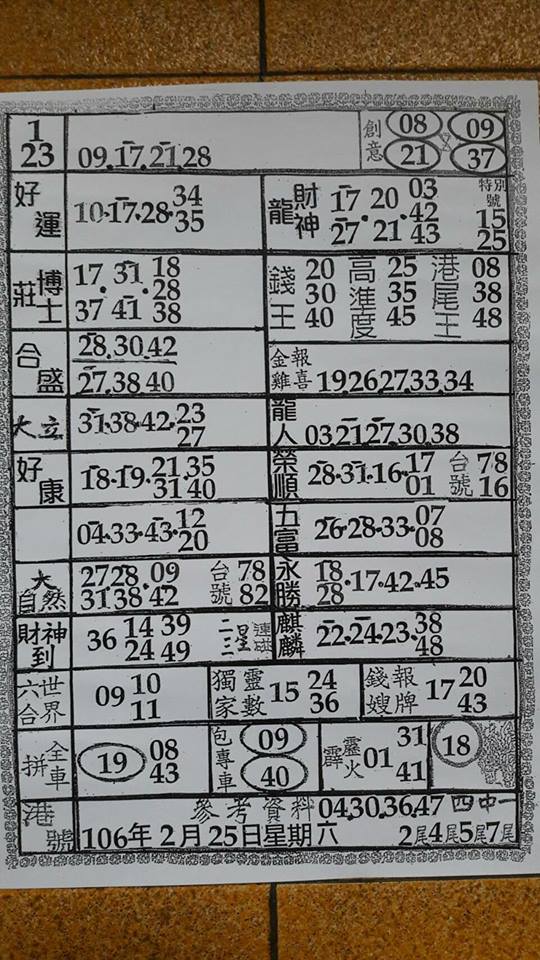 1
23
09.17.21.28
創意 08 09
21 37
好運 10.17.28.34
35
龍 財神 17 20 03 特別號
42 15
27 21 43 25
莊 博士 17 31 18
28
37 41 38
錢王 20 高準度 25 港尾王 08
30 35 38
40 45 48
合盛 28.30.42
27.38 40
金雞報喜 19.26.27.33.34
大立 31.38.42.23
27
龍人 03.21.27.30.38
好康 18.19.21.35
31 40
榮順 28.31.16.17 台號 78
01 16
04.33.43.12
20
五富 26.28.33.07
08
大自然 27 28.09 台號 78
31 38 42 82
永勝 18.17.42.45
28
財神到 36 14 39 二三星連碰
24 49
麒麟 22.24.23.38
48
六合世界 09 10
11
獨家靈數 15 24
36
錢嫂報牌 17 20
43
拼全車 19 08
43
包專車 09
40
霹靂火 01 31
41
18
港號 參考資料 04.30.36.47 四中一
106年2月25日星期六 2尾4尾5尾7尾